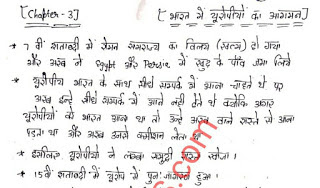 [Chapter - 3] [भारत में यूरोपीयों का आगमन]
* 7 वीं शताब्दी में रोमन साम्राज्य का विलय (खत्म) हो गया
और अरब ने Egypt और Persia में खुद के पाँव जमा लिये
* यूरोपीय भारत के साथ सीधे सम्पर्क में आना चाहते थे पर
अरब इन्हें सीधे सम्पर्क में आने नहीं देते थे क्योंकि अगर
यूरोपीयों को भारत आना था तो उन्हें अरब वाले रास्ते से आना
पड़ता था और अरब उनसे कमीशन लेता था
* इसलिए यूरोपीयों ने समुद्री रास्ता खोजा।
* 15वीं शताब्दी में यूरोप में पुनःजागरण हुआ।
s.com